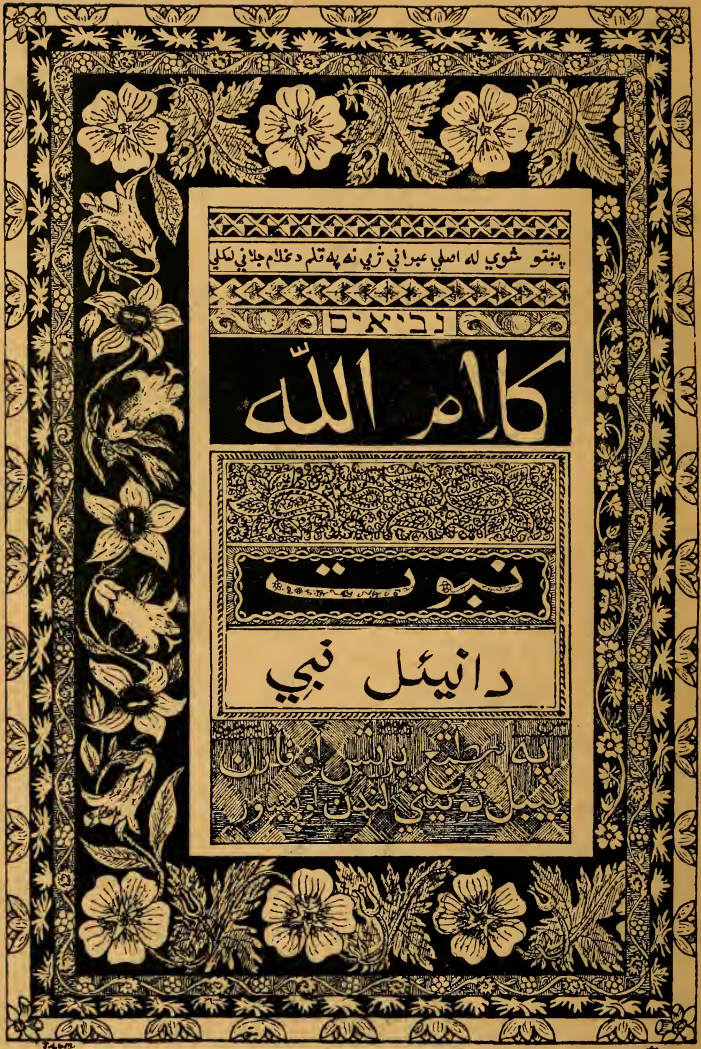 پښتو شوي له اصلي عبراني ژبي نه په قلم د غلام جلاني لیکلي
נביאים
کلام الله
نبوت
دانیئل نبي
په مطبع برتش او فارن
بیبل سوسیتي لندن